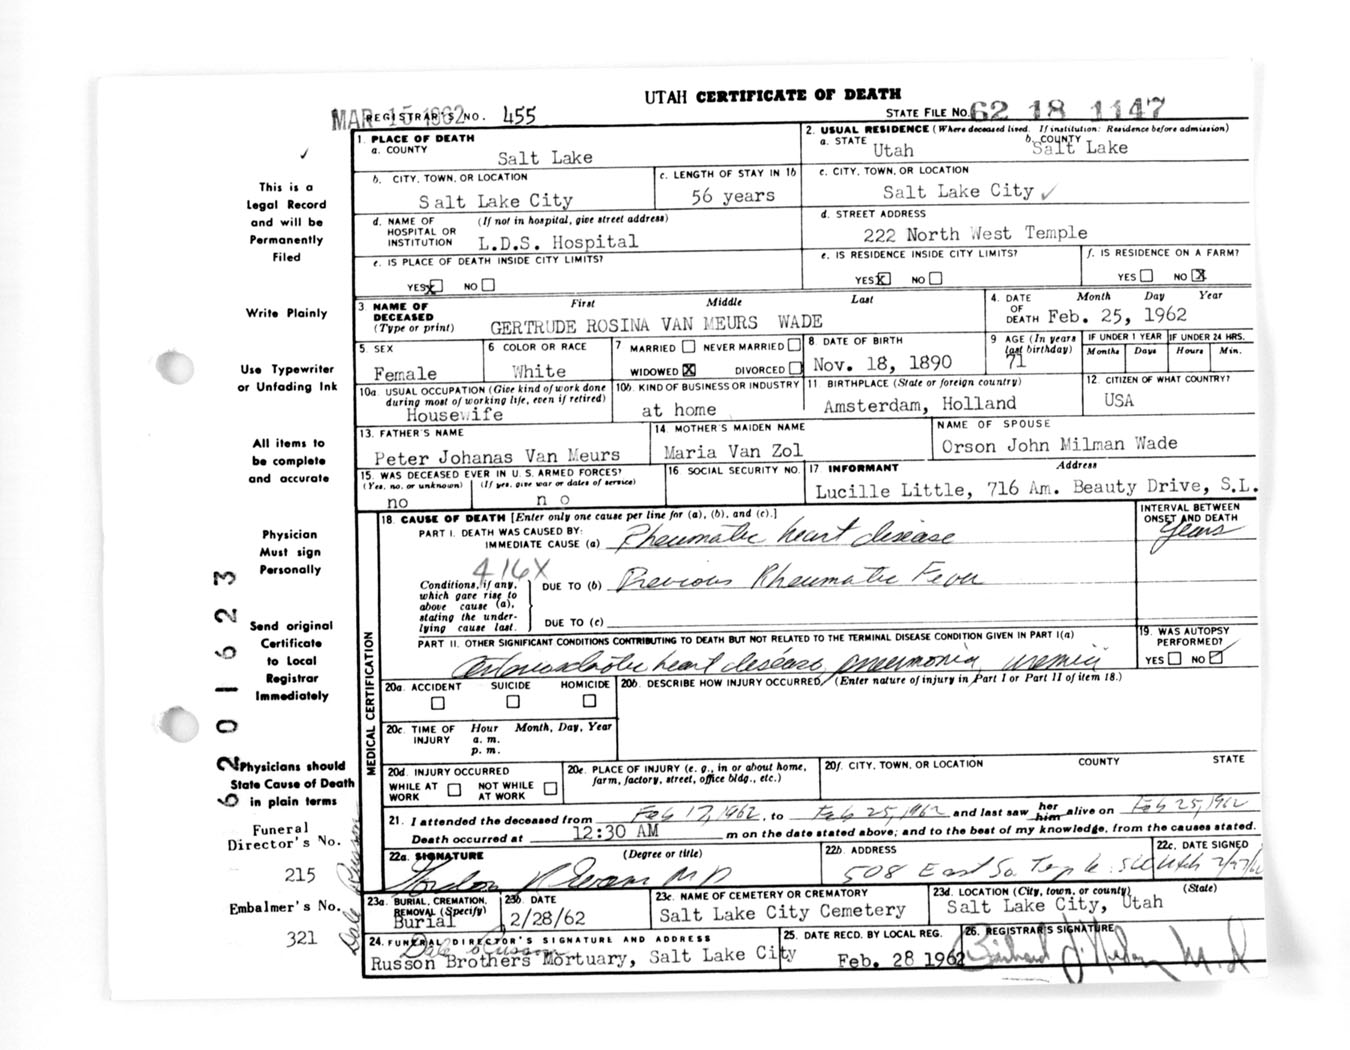 UTAH CERTIFICATE OF DEATH
MAR 15 1962 REGISTRAR'S NO. 455 STATE FILE NO. 62 18 1147
1. PLACE OF DEATH
a. COUNTY Salt Lake
2. USUAL RESIDENCE (Where deceased lived. If institution: Residence before admission)
a. STATE Utah b. COUNTY Salt Lake
b. CITY, TOWN, OR LOCATION Salt Lake City
c. LENGTH OF STAY IN 1b 56 years
c. CITY, TOWN, OR LOCATION
Salt Lake City ✓
d. NAME OF HOSPITAL OR INSTITUTION (If not in hospital, give street address)
L.D.S. Hospital
d. STREET ADDRESS
222 North West Temple
e. IS PLACE OF DEATH INSIDE CITY LIMITS?
YES X NO
e. IS RESIDENCE INSIDE CITY LIMITS?
YES X NO
f. IS RESIDENCE ON A FARM?
YES NO X
3. NAME OF DECEASED (Type or print) First Middle Last
GERTRUDE ROSINA VAN MEURS WADE
4. DATE OF DEATH Month Day Year
Feb. 25, 1962
5. SEX
Female
6 COLOR OR RACE
White
7 MARRIED NEVER MARRIED
WIDOWED X DIVORCED
8 DATE OF BIRTH
Nov. 18, 1890
9 AGE (In years last birthday)
71
IF UNDER 1 YEAR IF UNDER 24 HRS.
Months Days Hours Min.
10a. USUAL OCCUPATION (Give kind of work done during most of working life, even if retired)
Housewife
10b. KIND OF BUSINESS OR INDUSTRY
at home
11. BIRTHPLACE (State or foreign country)
Amsterdam, Holland
12. CITIZEN OF WHAT COUNTRY?
USA
13. FATHER'S NAME
Peter Johanas Van Meurs
14. MOTHER'S MAIDEN NAME
Maria Van Zol
NAME OF SPOUSE
Orson John Milman Wade
15. WAS DECEASED EVER IN U. S. ARMED FORCES?
(Yes, no, or unknown) (If yes, give war or dates of service)
no no
16. SOCIAL SECURITY NO.
17. INFORMANT Address
Lucille Little, 716 Am. Beauty Drive, S.L.
MEDICAL CERTIFICATION
18. CAUSE OF DEATH [Enter only one cause per line for (a), (b), and (c).]
INTERVAL BETWEEN ONSET AND DEATH
PART I. DEATH WAS CAUSED BY:
IMMEDIATE CAUSE (a) Rheumatic heart disease years
416X
Conditions, if any, which gave rise to above cause (a), stating the underlying cause last.
DUE TO (b) Previous Rheumatic Fever
DUE TO (c)
PART II. OTHER SIGNIFICANT CONDITIONS CONTRIBUTING TO DEATH BUT NOT RELATED TO THE TERMINAL DISEASE CONDITION GIVEN IN PART I(a)
heart disease, pneumonia, uremia
19. WAS AUTOPSY PERFORMED?
YES NO ✓
20a. ACCIDENT SUICIDE HOMICIDE
20b. DESCRIBE HOW INJURY OCCURRED. (Enter nature of injury in Part I or Part II of item 18.)
20c. TIME OF INJURY Hour Month, Day, Year
a. m.
p. m.
20d. INJURY OCCURRED
WHILE AT WORK NOT WHILE AT WORK
20e. PLACE OF INJURY (e. g., in or about home, farm, factory, street, office bldg., etc.)
20f. CITY, TOWN, OR LOCATION COUNTY STATE
21. I attended the deceased from Feb 17, 1962, to Feb 25, 1962 and last saw her him alive on Feb 25, 1962
Death occurred at 12:30 AM m on the date stated above; and to the best of my knowledge, from the causes stated.
22a. SIGNATURE (Degree or title)
Gordon R Evans MD
22b. ADDRESS
508 East So. Temple SLC Utah
22c. DATE SIGNED
2/27/62
23a. BURIAL, CREMATION, REMOVAL (Specify)
Burial
23b. DATE
2/28/62
23c. NAME OF CEMETERY OR CREMATORY
Salt Lake City Cemetery
23d. LOCATION (City, town, or county) (State)
Salt Lake City, Utah
24. FUNERAL DIRECTOR'S SIGNATURE AND ADDRESS
Dale Russon
Russon Brothers Mortuary, Salt Lake City
25. DATE RECD. BY LOCAL REG.
Feb. 28 1962
26. REGISTRAR'S SIGNATURE
✓
This is a
Legal Record
and will be
Permanently
Filed
Write Plainly
Use Typewriter
or Unfading Ink
All items to
be complete
and accurate
Physician
Must sign
Personally
Send original
Certificate
to Local
Registrar
Immediately
Physicians should
State Cause of Death
in plain terms
Funeral
Director's No.
215
Embalmer's No.
321
Dale Russon
62 201623